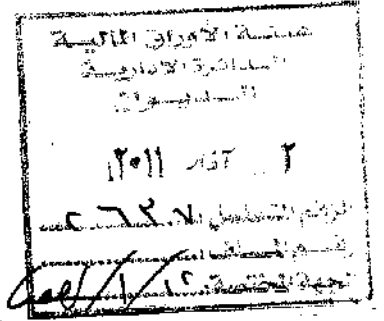 هيئة الأوراق المالية
الدائرة الإدارية
الديوان
٢ آذار ٢٠١١
الرقم المتسلسل ٢٦٣٧
رقم الملف
الجهة المختصة ١٢/١